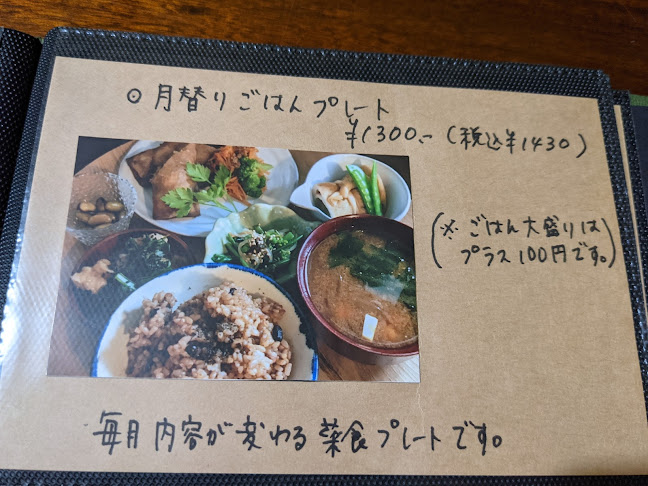 ⊙ 月替りごはんプレート
¥1300.-(税込¥1430)
(※ ごはん大盛りは
プラス100円です。)
毎月内容が変わる菜食プレートです。